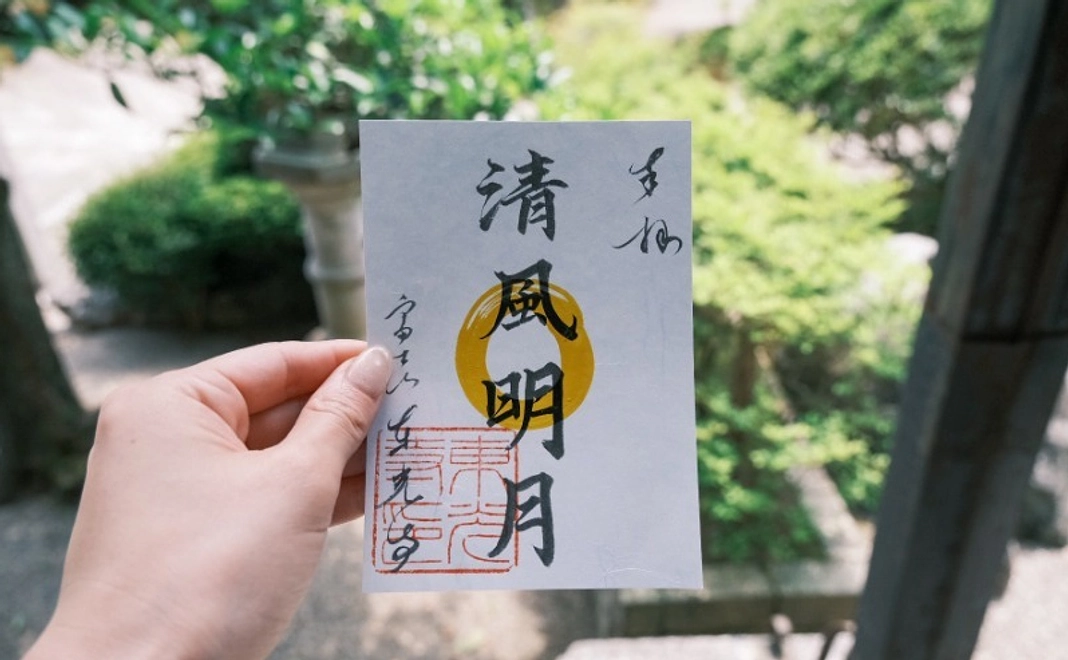 奉拝
清風明月
富士山 東光寺
東光
寺印